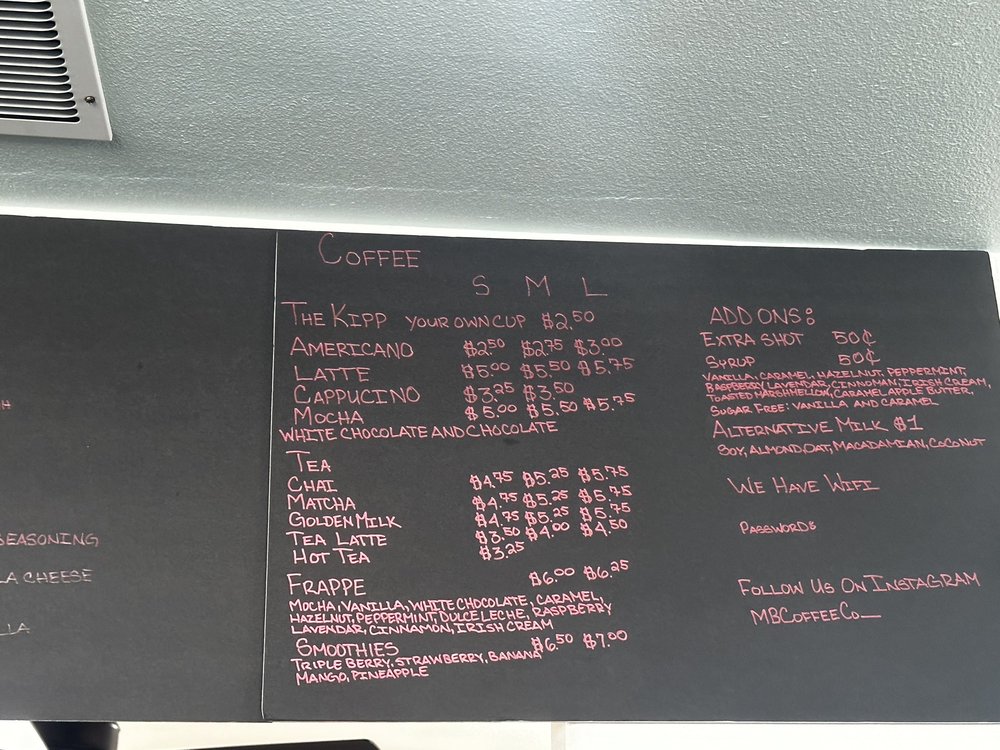 H
SEASONING
LA CHEESE
LA
COFFEE
S M L
THE KIPP YOUR OWN CUP $2.50
AMERICANO $2.50 $2.75 $3.00
LATTE $5.00 $5.50 $5.75
CAPPUCINO $3.25 $3.50
MOCHA $5.00 $5.50 $5.75
WHITE CHOCOLATE AND CHOCOLATE
TEA
CHAI $4.75 $5.25 $5.75
MATCHA $4.75 $5.25 $5.75
GOLDEN MILK $4.75 $5.25 $5.75
TEA LATTE $3.50 $4.00 $4.50
HOT TEA $3.25
FRAPPE $6.00 $6.25
MOCHA, VANILLA, WHITE CHOCOLATE, CARAMEL,
HAZELNUT, PEPPERMINT, DULCE LECHE, RASPBERRY
LAVENDAR, CINNAMON, IRISH CREAM
SMOOTHIES $6.50 $7.00
TRIPLE BERRY, STRAWBERRY, BANANA
MANGO, PINEAPPLE
ADD ONS:
EXTRA SHOT 50¢
SYRUP 50¢
VANILLA, CARAMEL, HAZELNUT, PEPPERMINT,
RASPBERRY, LAVENDAR, CINNOMAN, IRISH CREAM,
TOASTED MARSHMELLOW, CARAMEL APPLE BUTTER,
SUGAR FREE: VANILLA AND CARAMEL
ALTERNATIVE MILK $1
SOY, ALMOND, OAT, MACADAMIAN, COCONUT
WE HAVE WIFI
PASSWORD:
FOLLOW US ON INSTAGRAM
MBCOFFEECO_